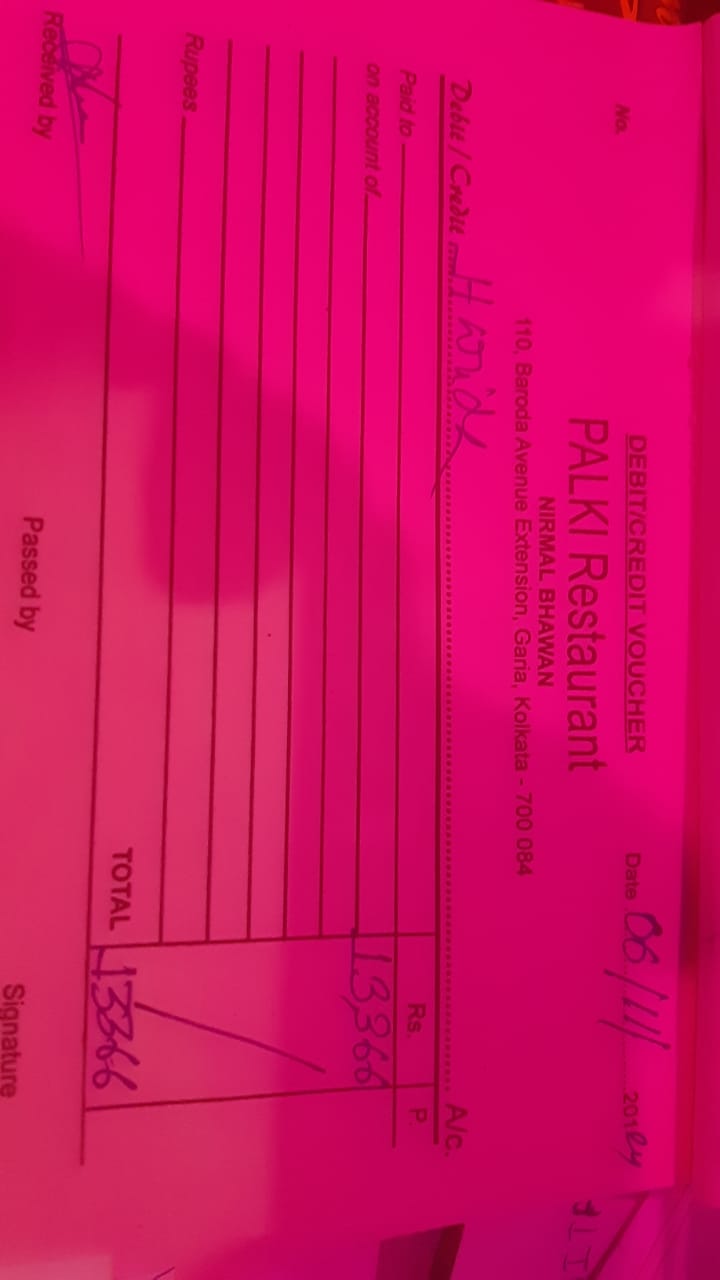 DEBIT/CREDIT VOUCHER
No. Date 06/11/ 20124
PALKI Restaurant
NIRMAL BHAWAN
110, Baroda Avenue Extension, Garia, Kolkata - 700 084
Debit / Credit A/c.
Paid to Rs. P.
on account of 13,366
Rupees
TOTAL 13366
Received by Passed by Signature